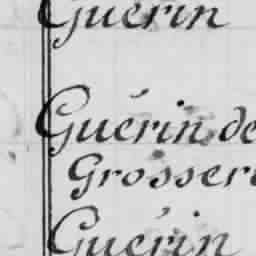 Guérin
Guérin de
Grosser
Guérin